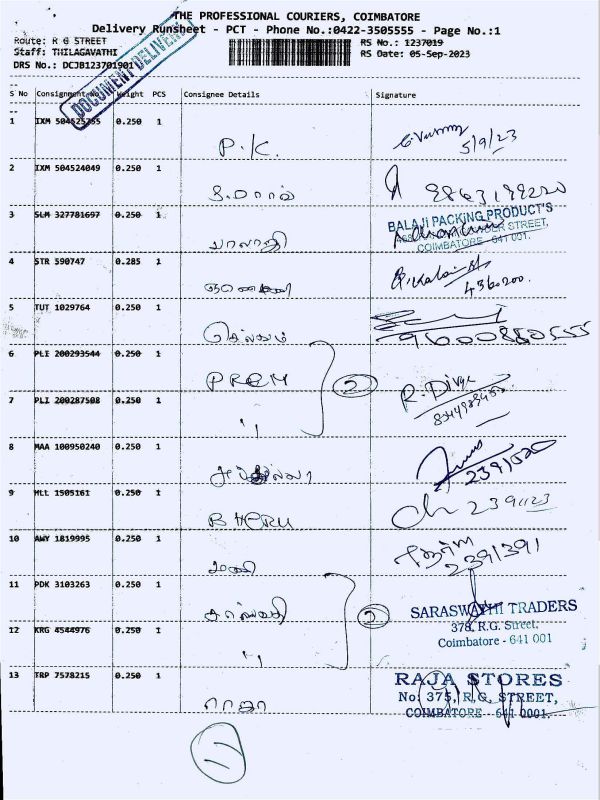 THE PROFESSIONAL COURIERS, COIMBATORE
Delivery Runsheet - PCT - Phone No.:0422-3505555 - Page No.:1
Route: R G STREET
RS No.: 1237019
Staff: THILAGAVATHI
RS Date: 05-Sep-2023
DRS No.: DCJB123701901
DOCUMENT DELIVERY
S No Consignment No Weight PCS Consignee Details Signature
1 IXM 0.250 1 P.K. 5/9/23
2 IXM 504524049 0.250 1
3 SLM 327781697 0.250 1 பாலாஜி
BALAJI PACKING PRODUCT'S
STREET,
COIMBATORE - 641 001.
4 STR 590747 0.285 1 4360200.
5 TUT 1029764 0.250 1 செல்வம் 9600880555
6 PLI 200293544 0.250 1 PREM 2 R. Divya
7 PLI 200287508 0.250 1 "
8 MAA 100950240 0.250 1 2391520
9 MLL 1505161 0.250 1 2391123
10 AWY 1819995 0.250 1 மணி 2391391
11 PDK 3103263 0.250 1 2
SARASWATHI TRADERS
378, R.G. Street,
Coimbatore - 641 001
12 KRG 4544976 0.250 1 "
13 TRP 7578215 0.250 1 ராஜா
RAJA STORES
No: 375, R.G. STREET,
COIMBATORE - 641 0001.